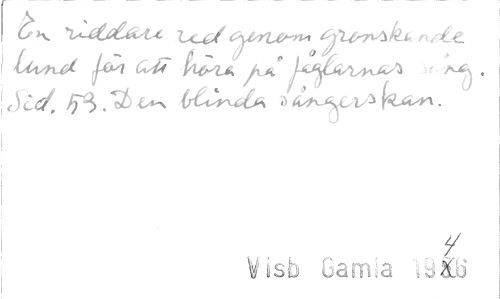 En riddare red genom grönskande
lund för att höra på fåglarnas sång.
Sid. 53. Den blinda sångerskan.
4
Visb Gamla 1926